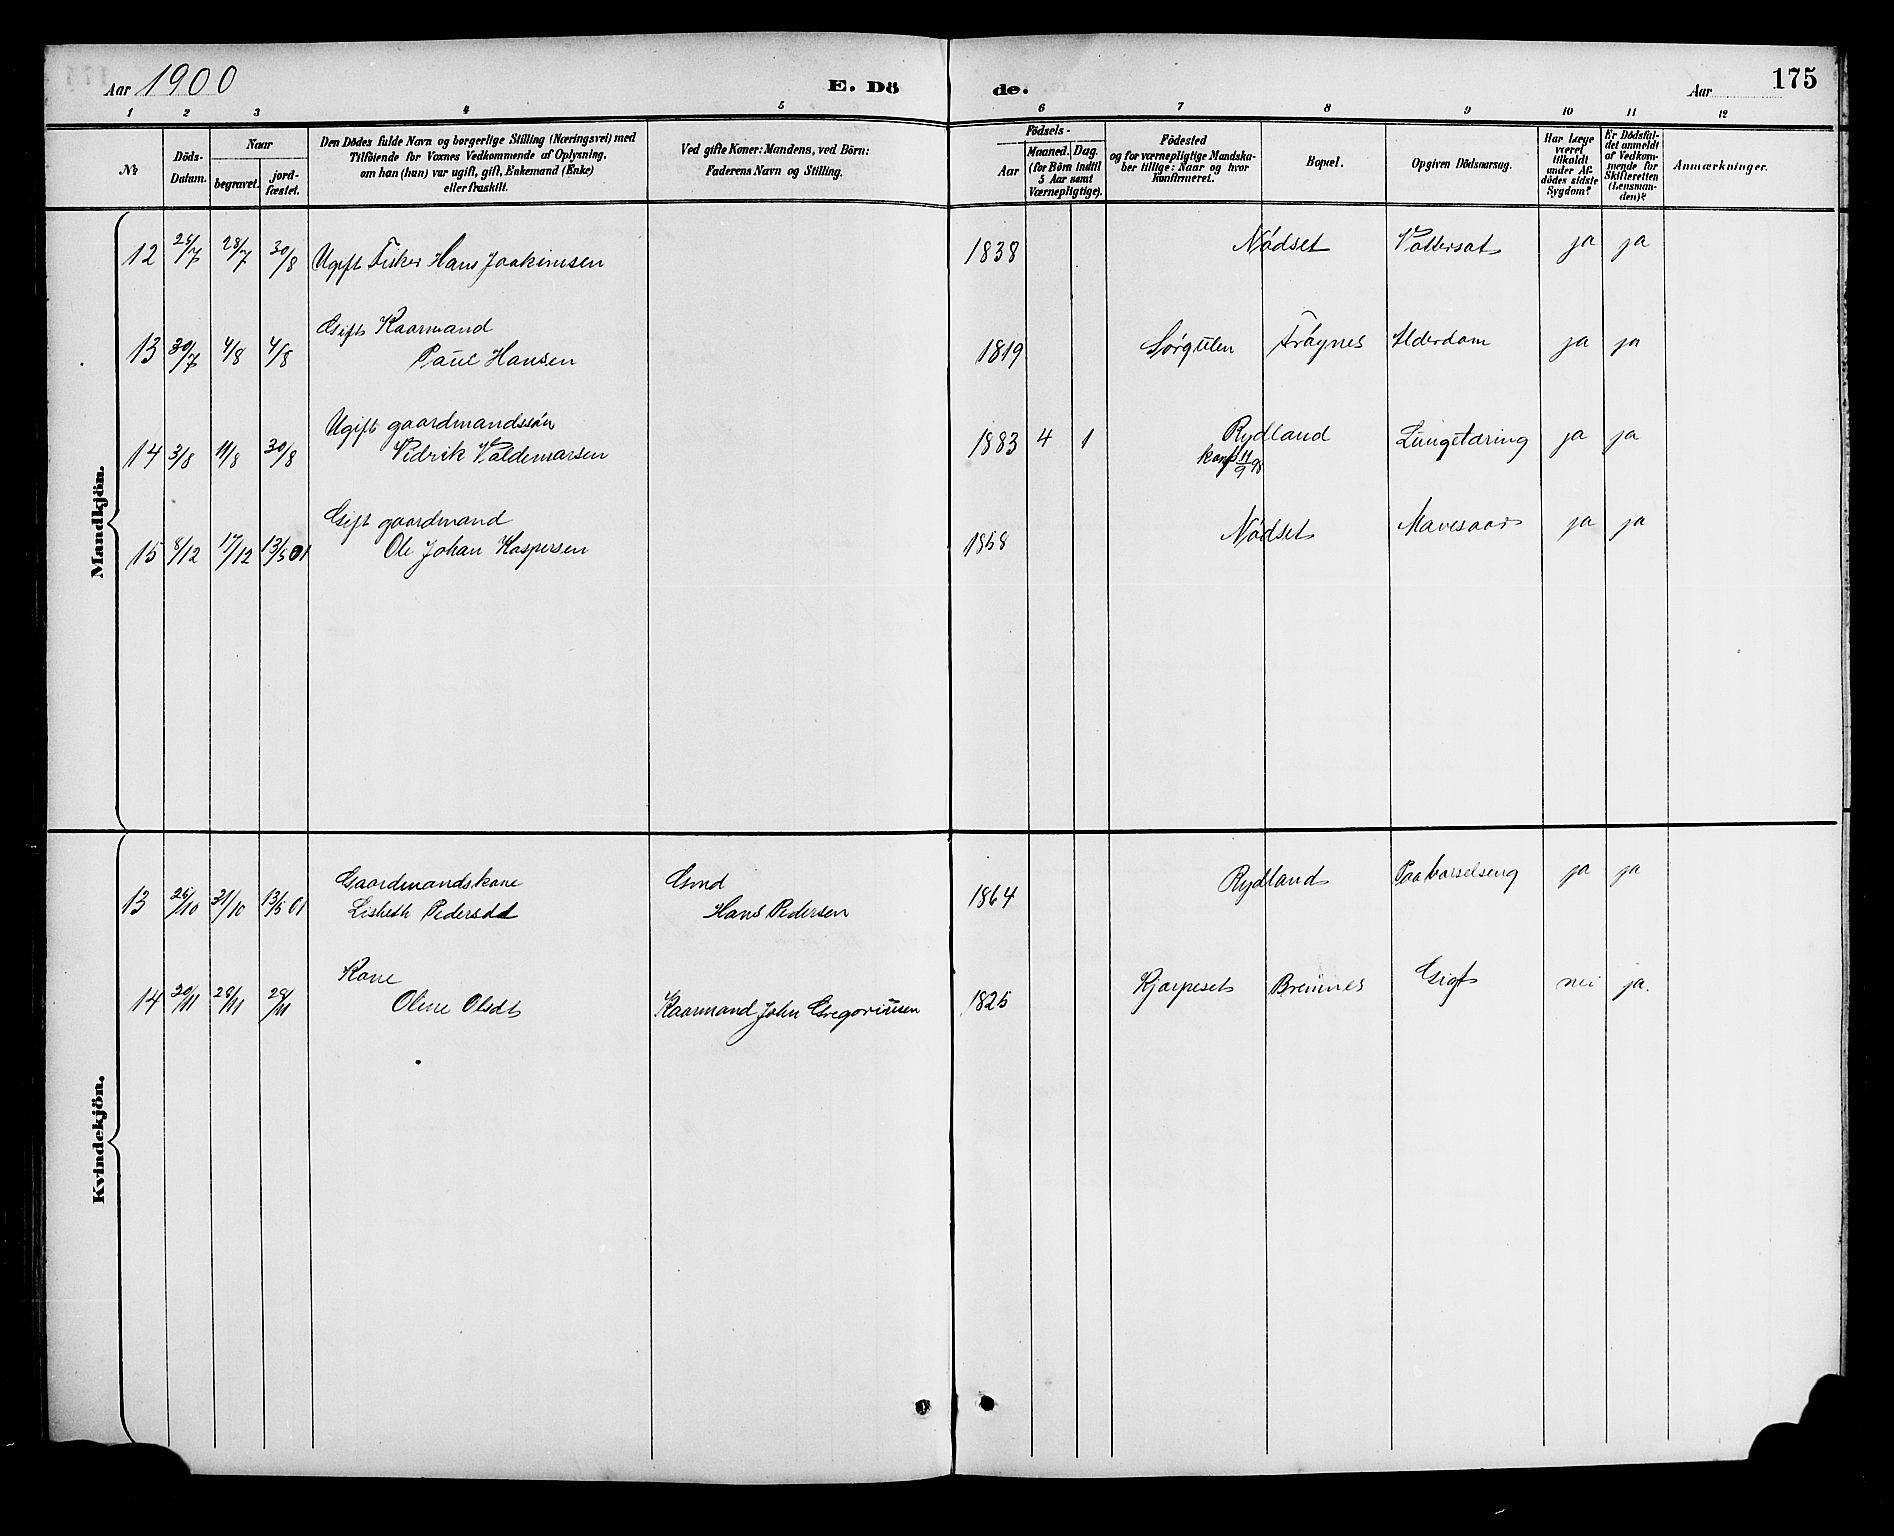 Aar 1900 E. Dö de. Aar 175
1 2 3 4 5 6 7 8 9 10 11 12
№
Döds-Datum.
Naar
begravet.
jord-fæstet.
Den Dödes fulde Navn og borgerlige Stilling (Næringsvei) med
Tilföiende for Voxnes Vedkommende af Oplysning,
om han (hun) var ugift, gift, Enkemand (Enke)
eller fraskilt.
Ved gifte Koner: Mandens, ved Börn:
Faderens Navn og Stilling.
Födsels-
Aar
Maaned. Dag.
(for Börn indtil
5 Aar samt
Værnepligtige).
Födested
og for værnepligtige Mandska-
ber tillige: Naar og hvor
konfirmeret.
Bopæl.
Opgiven Dödsaarsag.
Har Læge
været
tilkaldt
under Af-
dödes sidste
Sygdom?
Er Dödsfal-
det anmeldt
af Vedkom-
mende for
Skifteretten
(Lensman-
den)?
Anmærkninger.
Mandkjön.
12 28/7 30/8 Ugift Fisker Hans Joakimsen 1838 Nødset Vattersot ja ja
Gift Kaarmand
13 30/7 4/8 4/8 Paul Hansen 1819 Sørgulen Frøynes Alderdom ja ja
Ugift gaardmandssøn
14 3/8 11/8 30/8 Vidrik Valdemarsen 1883 4 1 Rydland Lungetæring ja ja
konf 11/9 98
Gift gaardmand
15 8/12 17/12 13/5 01 Ole Johan Kaspersen 1858 Nødset Mavesaar ja ja
Kvindekjön.
Gaardmandskone Gmd
13 31/10 13/5 01 Lisbeth Pedersdt Hans Pedersen 1864 Rydland Paa barselseng ja ja
Kone
14 20/11 28/11 28/11 Oline Olsdt Kaarmand John Gregoriussen 1825 Kjørpeset Bremnes Gigt nei ja.